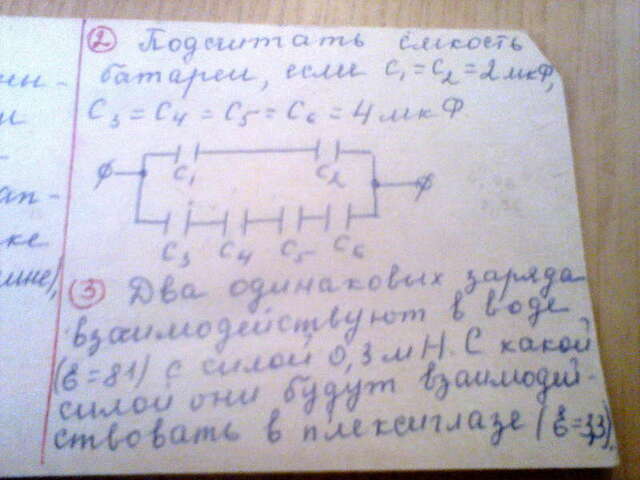 2 Подсчитать ёмкость
батареи, если C₁=C₂=2мкФ,
C₃=C₄=C₅=C₆=4мкФ.
C₁ C₂
C₃ C₄ C₅ C₆
3 Два одинаковых заряда
взаимодействуют в воде
(ε=81) с силой 0,3мН. С какой
силой они будут взаимодей-
ствовать в плексиглазе (ε=3,3).